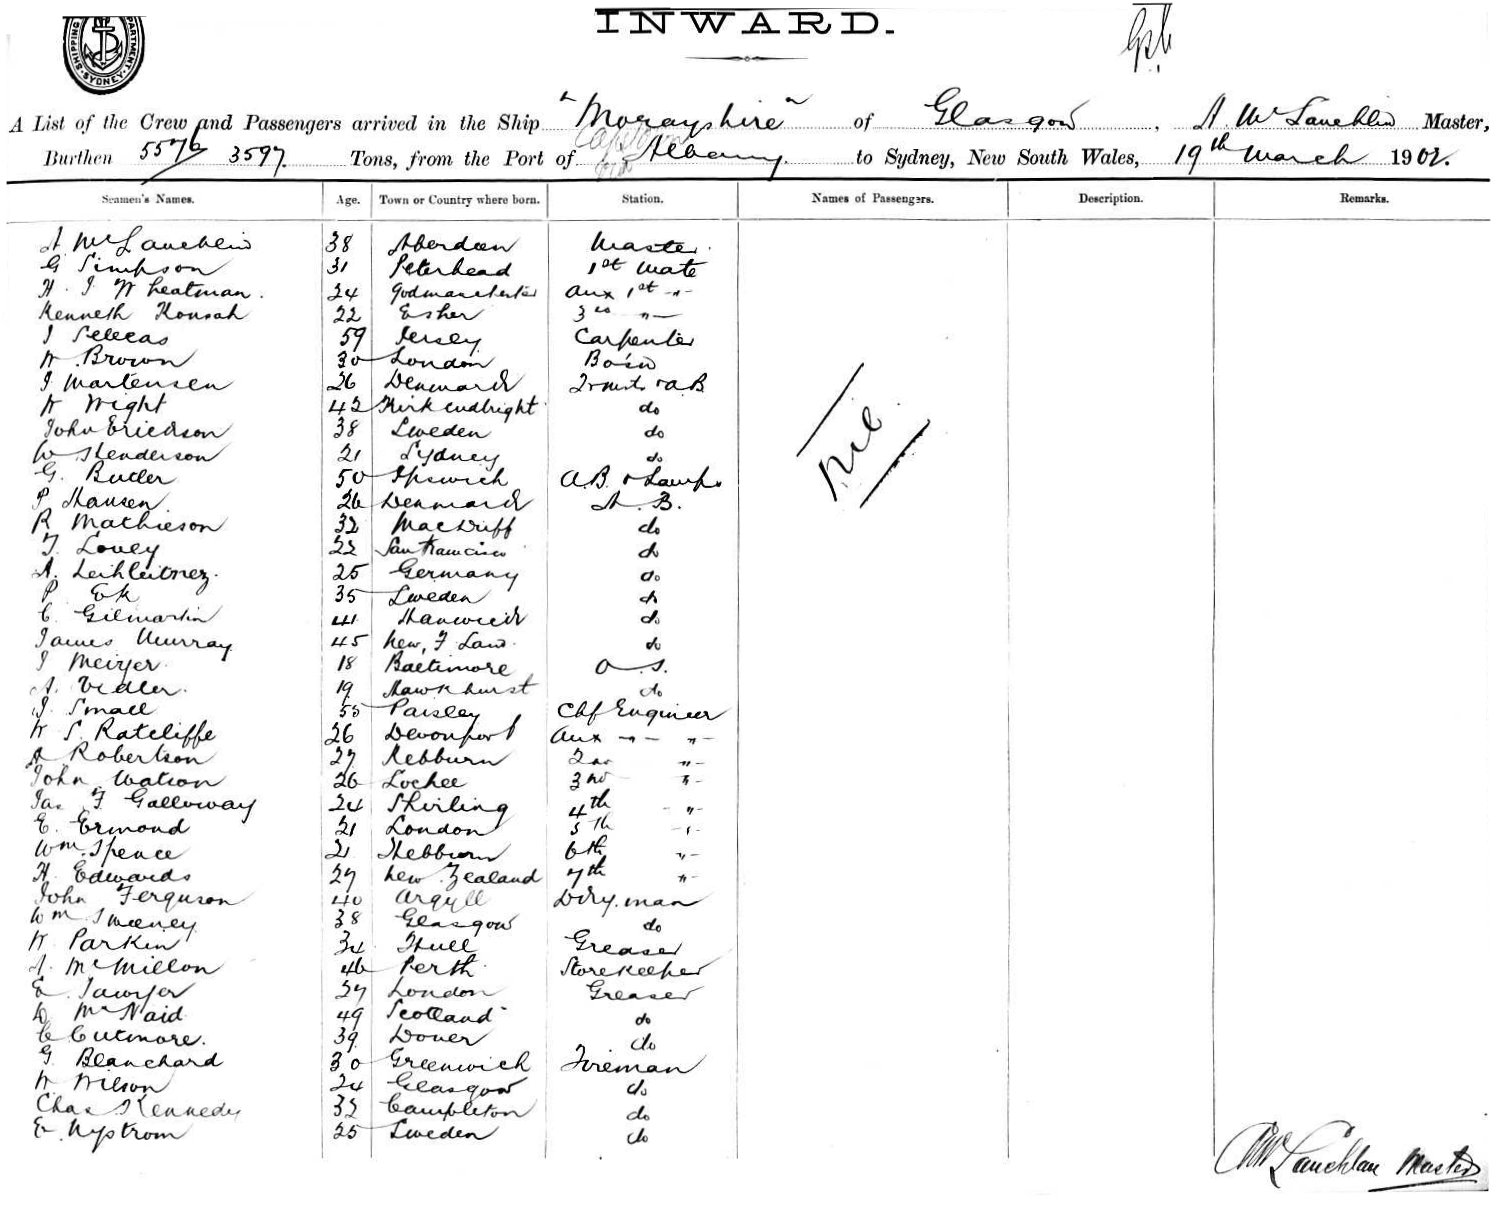 INWARD.
SHIPPING DEPARTMENT SYDNEY
A List of the Crew and Passengers arrived in the Ship "Morayshire" of Glasgow, A McLauchlin Master,
Burthen 5576 3597. Tons, from the Port of Albany. to Sydney, New South Wales, 19th March 1902.
Seamen's Names. Age. Town or Country where born. Station. Names of Passengers. Description. Remarks.
A McLauchlin 38 Aberdeen Master.
G Simpson 31 Peterhead 1st Mate
H. J. Wheatman. 24 Godmanchester Aux 1st -"-
Kenneth 22 Esher 3rd -"-
J 59 Jersey Carpenter
W Brown 30 London Bo'sn
J Martensen 26 Denmark &A.B
W Wight 42 Kirkcudbright do
John Erickson 38 Sweden do
W Henderson 21 Sydney do
G. Butler 50 Ipswich A.B. & Lamps
P Hansen 26 Denmark A. B.
R Mathieson 32 MacDuff do
T. Lovey 22 San Francisco do
A. Leihleitnez. 25 Germany do
P Ek 35 Sweden do
C. Gilmartin 41 do
James Murray 45 New F Land. do
J Meiyer. 18 Baltimore O.S.
A. Vidler. 19 Hawkhurst do
J. Small 55 Paisley Chf Engineer
W S. Ratcliffe 26 Devonport Aux -"- "-
A Robertson 27 Hebburn 2nd "-
John Watson 26 Lochee 3rd "-
Jas F. Galloway 24 Stirling 4th "-
E. Ermond 21 London 5th "-
Wm. Spence 21 Hebburn 6th "-
H. Edwards 27 New Zealand 7th "-
John Ferguson 40 Argyll Dky. man
Wm Sweeney 38 Glasgow do
W Parkin 34 Hull Greaser
A. McMillon 46 Perth Storekeeper
E. Sawyer 27 London Greaser
D McNaid 49 Scotland do
C Cutmore. 39 Dover do
G. Blanchard 30 Greenwich Fireman
W Wilson 24 Glasgow do
Chas Kennedy 32 Campleton do
E. Nystrom 25 Sweden do
Nil
AMcLauchlan Master